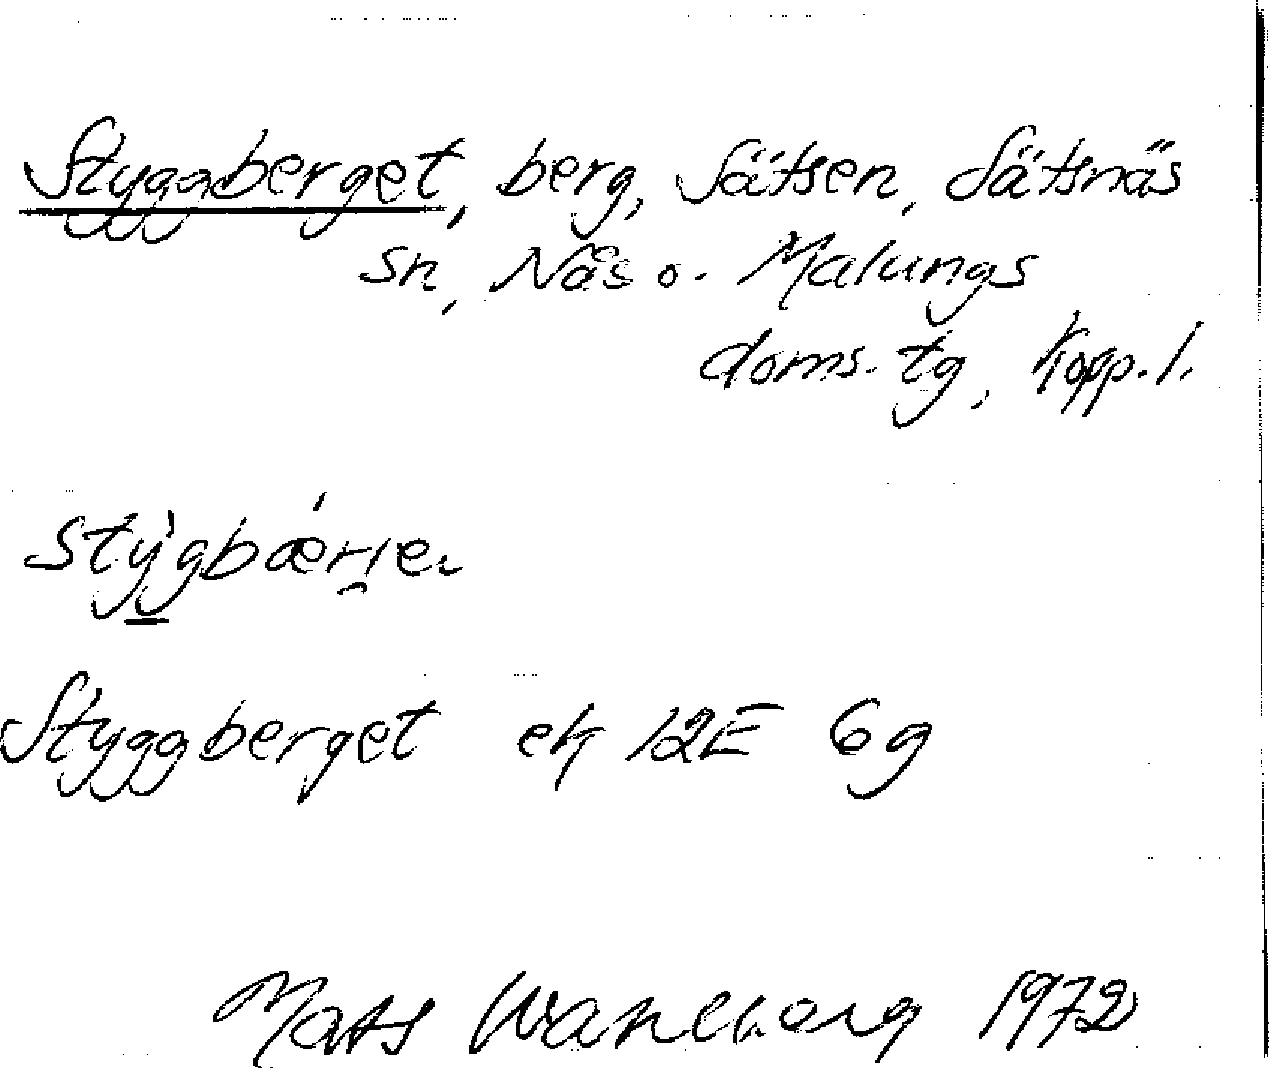 Styggberget, berg, Sätsen, Sätsnäs
sn, Nås o. Malungs
doms. tg, Kopp. l.
Styggberget ek 12E 6g
Mats Wahlberg 1972